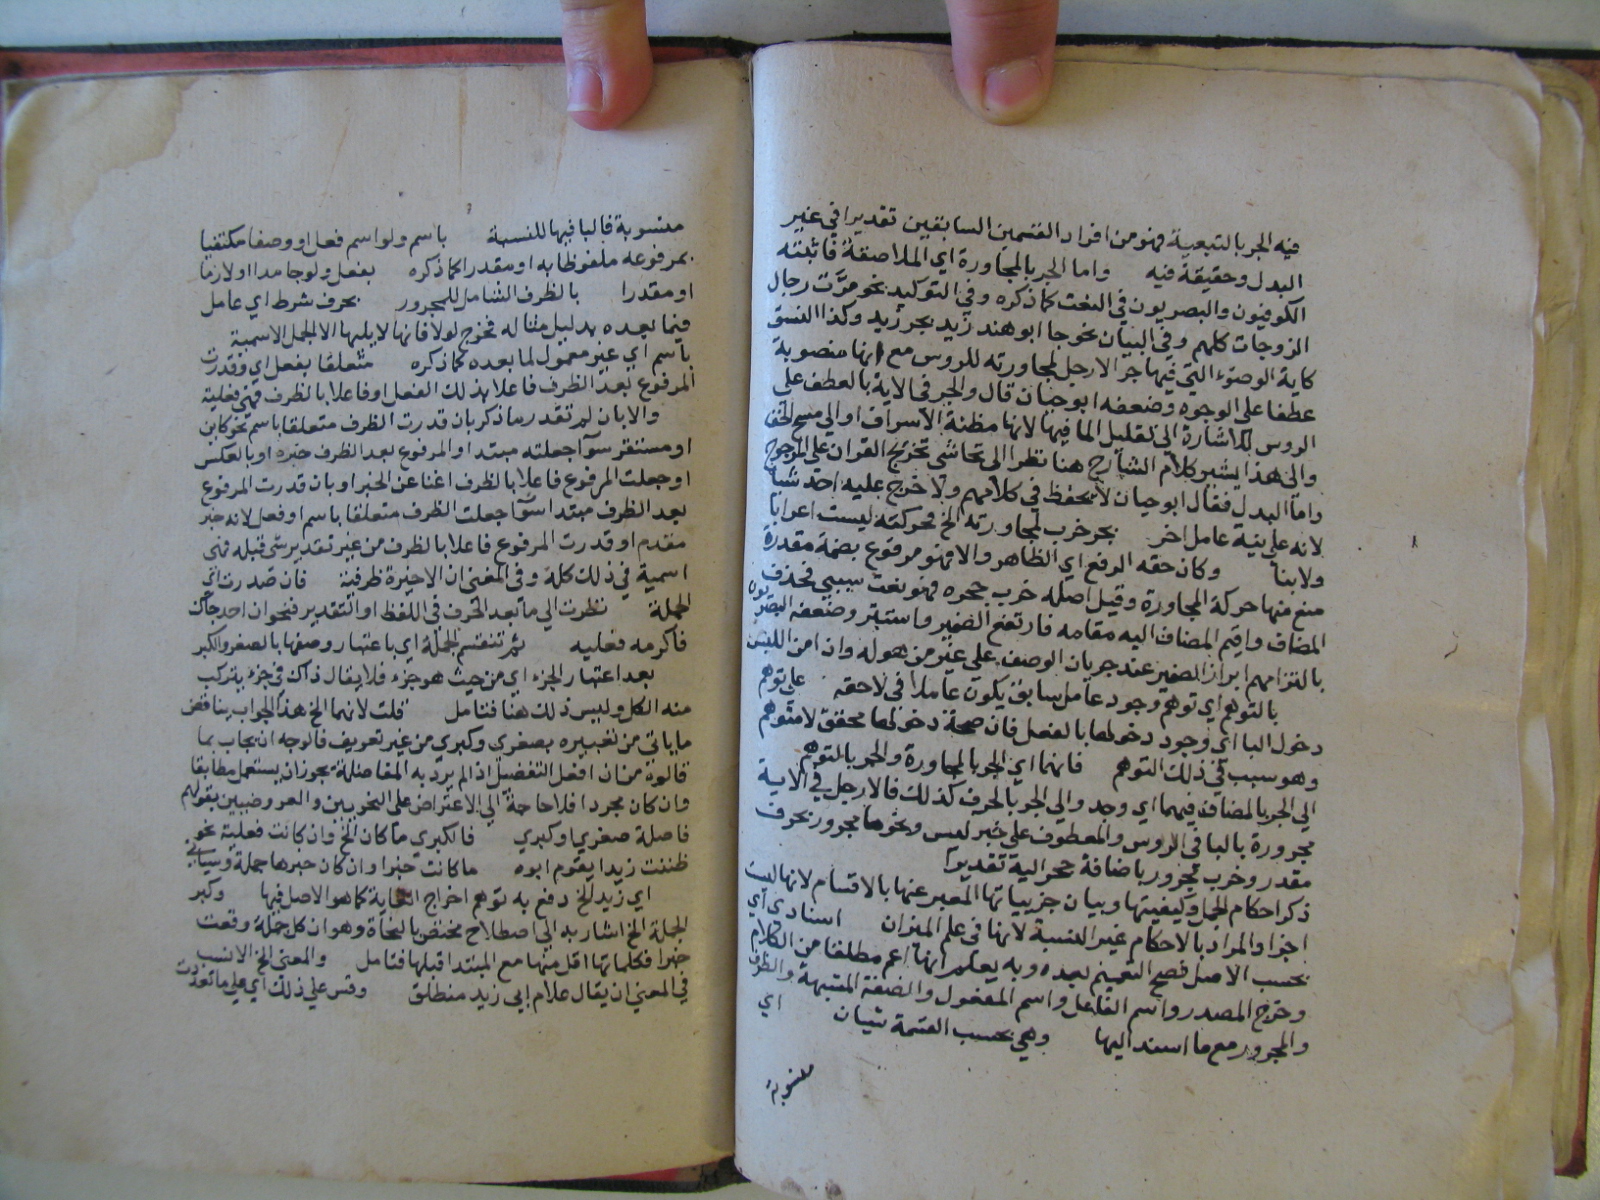 فيه الجر بالتبعية فهو من افراد القسمين السابقين تقديرا في غير
البدل وحقيقة فيه واما الجر بالمجاورة اي الملاصقة فاثبته
الكوفيون والبصريون في النعت كما ذكره وفي التوكيد نحو مرت رجال
الزوجات كلهم وفي البيان نحو جا ابو هند زيد بجر زيد وكذا النسق
كاية الوضوء التي فيها جر الارجل لمجاورته للروس مع انها منصوبة
عطفا على الوجوه وضعفه ابو حيان قال والجر في الاية بالعطف على
الروس بل اشارة الى تقليل الما فيها لانها مظنة الاسراف او الى مسح الخف
والى هذا يشير كلام الشارح هنا نظرا الى تحاشي تخريج القران على المرجوح
واما البدل فقال ابو حيان لا يحفظ في كلامهم ولا خرج عليه احد شيا
لانه على نية عامل اخر بجر خرب لمجاورته الخ فحركته ليست اعرابا
ولا بنا وكان حقه الرفع اي الظاهر والا فهو مرفوع بضمة مقدرة
منع منها حركة المجاورة وقيل اصله خرب جحره فهو نعت سببي فحذف
المضاف واقيم المضاف اليه مقامه فارتفع الضمير واستتر وضعفه البصريون
بالتزامهم ابراز الضمير عند جريان الوصف على غير من هو له وان امن اللبس
بالتوهم اي توهم وجود عامل سابق يكون عاملا في لاحقه على توهم
دخول البا اي وجود دخولها بالفعل فان صحة دخولها محقق لا متوهم
وهو سبب في ذلك التوهم فانهما اي الجر بالمجاورة والجر بالتوهم
الى الجر بالمضاف فيهما اي وحد والى الجر بالحرف كذلك فالارجل في الاية
مجرورة بالبا في الروس والمعطوف على خبر ليس ونحوها مجرور بحرف
مقدر وخرب مجرور باضافة جحر الية تقديرا
ذكر احكام الجمل وكيفيتها وبيان جزيياتها المعبر عنها بالاقسام لانها ليست
اجزا والمراد بالاحكام غير النسبة لانها في علم الميزان اسنادي اي
بحسب الاصل فصح التعميم بعده وبه يعلم انها اعم مطلقا من الكلام
وخرج المصدر واسم الفاعل واسم المفعول والصفة المشبهة والظرف
والمجرور مع ما اسند اليها وهي بحسب القسمة شيان اي
منسوبة
منسوبة فالبا فيها للنسبة باسم ولو اسم فعل او وصفا مكتفيا
بمرفوعه ملفوظا به او مقدرا كما ذكره بفعل ولو جامدا او لازما
او مقدرا بالظرف الشامل للمجرور بحرف شرط اي عامل
فيما بعده بدليل مثاله فخرج لولا فانها لا يليها الا الجمل الاسمية
باسم اي غير معمول لما بعده كما ذكره متعلقا بفعل اي وقدرت
المرفوع بعد الظرف فاعلا بذلك الفعل او فاعلا بالظرف فهي فعلية
والا بان لم تقدر ما ذكر بان قدرت الظرف متعلقا باسم نحو كاين
او مستقر سوآ جعلته مبتدا والمرفوع بعد الظرف خبره او بالعكس
او جعلت المرفوع فاعلا بالظرف اغنا عن الخبر او بان قدرت المرفوع
بعد الظرف مبتدا سوآ جعلت الظرف متعلقا باسم او فعل لانه خبر
مقدم او قدرت المرفوع فاعلا بالظرف من غير تقدير شي قبله فهي
اسمية في ذلك كله وفي المغني ان الاخيرة ظرفية فان صدرت اي
الجملة نظرت الى ما بعد الحرف في اللفظ او التقدير فنحو ان احد جاك
فاكرمه فعليه ثم تنقسم الجملة اي باعتبار وصفها بالصغر والكبر
بعد اعتبار الجزء اي من حيث هو جزء فلا يقال ذاك في جزء يتركب
منه الكل وليس ذلك هنا فتامل قلت لانهما الخ هذا الجواب يناقض
ما ياتي من تعبيره بصغري وكبري من غير تعريف فالوجه ان يجاب بما
قالوه من ان افعل التفضيل اذا لم يرد به المفاضلة يجوز ان يستعمل مطابقا
وان كان مجردا فلا حاجة الي الاعتراض على النحويين والعروضيين بقولهم
فاصلة صغري او كبري فالكبري ما كان الخ وان كانت فعلية نحو
ظننت زيدا يقوم ابوه ما كانت خبرا وان كان خبرها جملة وسياتي
اي زيد الخ دفع به توهم اخراج الحكاية كما هو الاصل فيها وكبر
الجملة الخ اشار به الى اصطلاح مختص بالنحاة وهو ان كل جملة وقعت
خبرا فكلماتها اقل منها مع المبتدا قبلها فتامل والمعني الخ الانسب
في المعني ان يقال غلام ابي زيد منطلق وقس علي ذلك اي علي ما تعددت